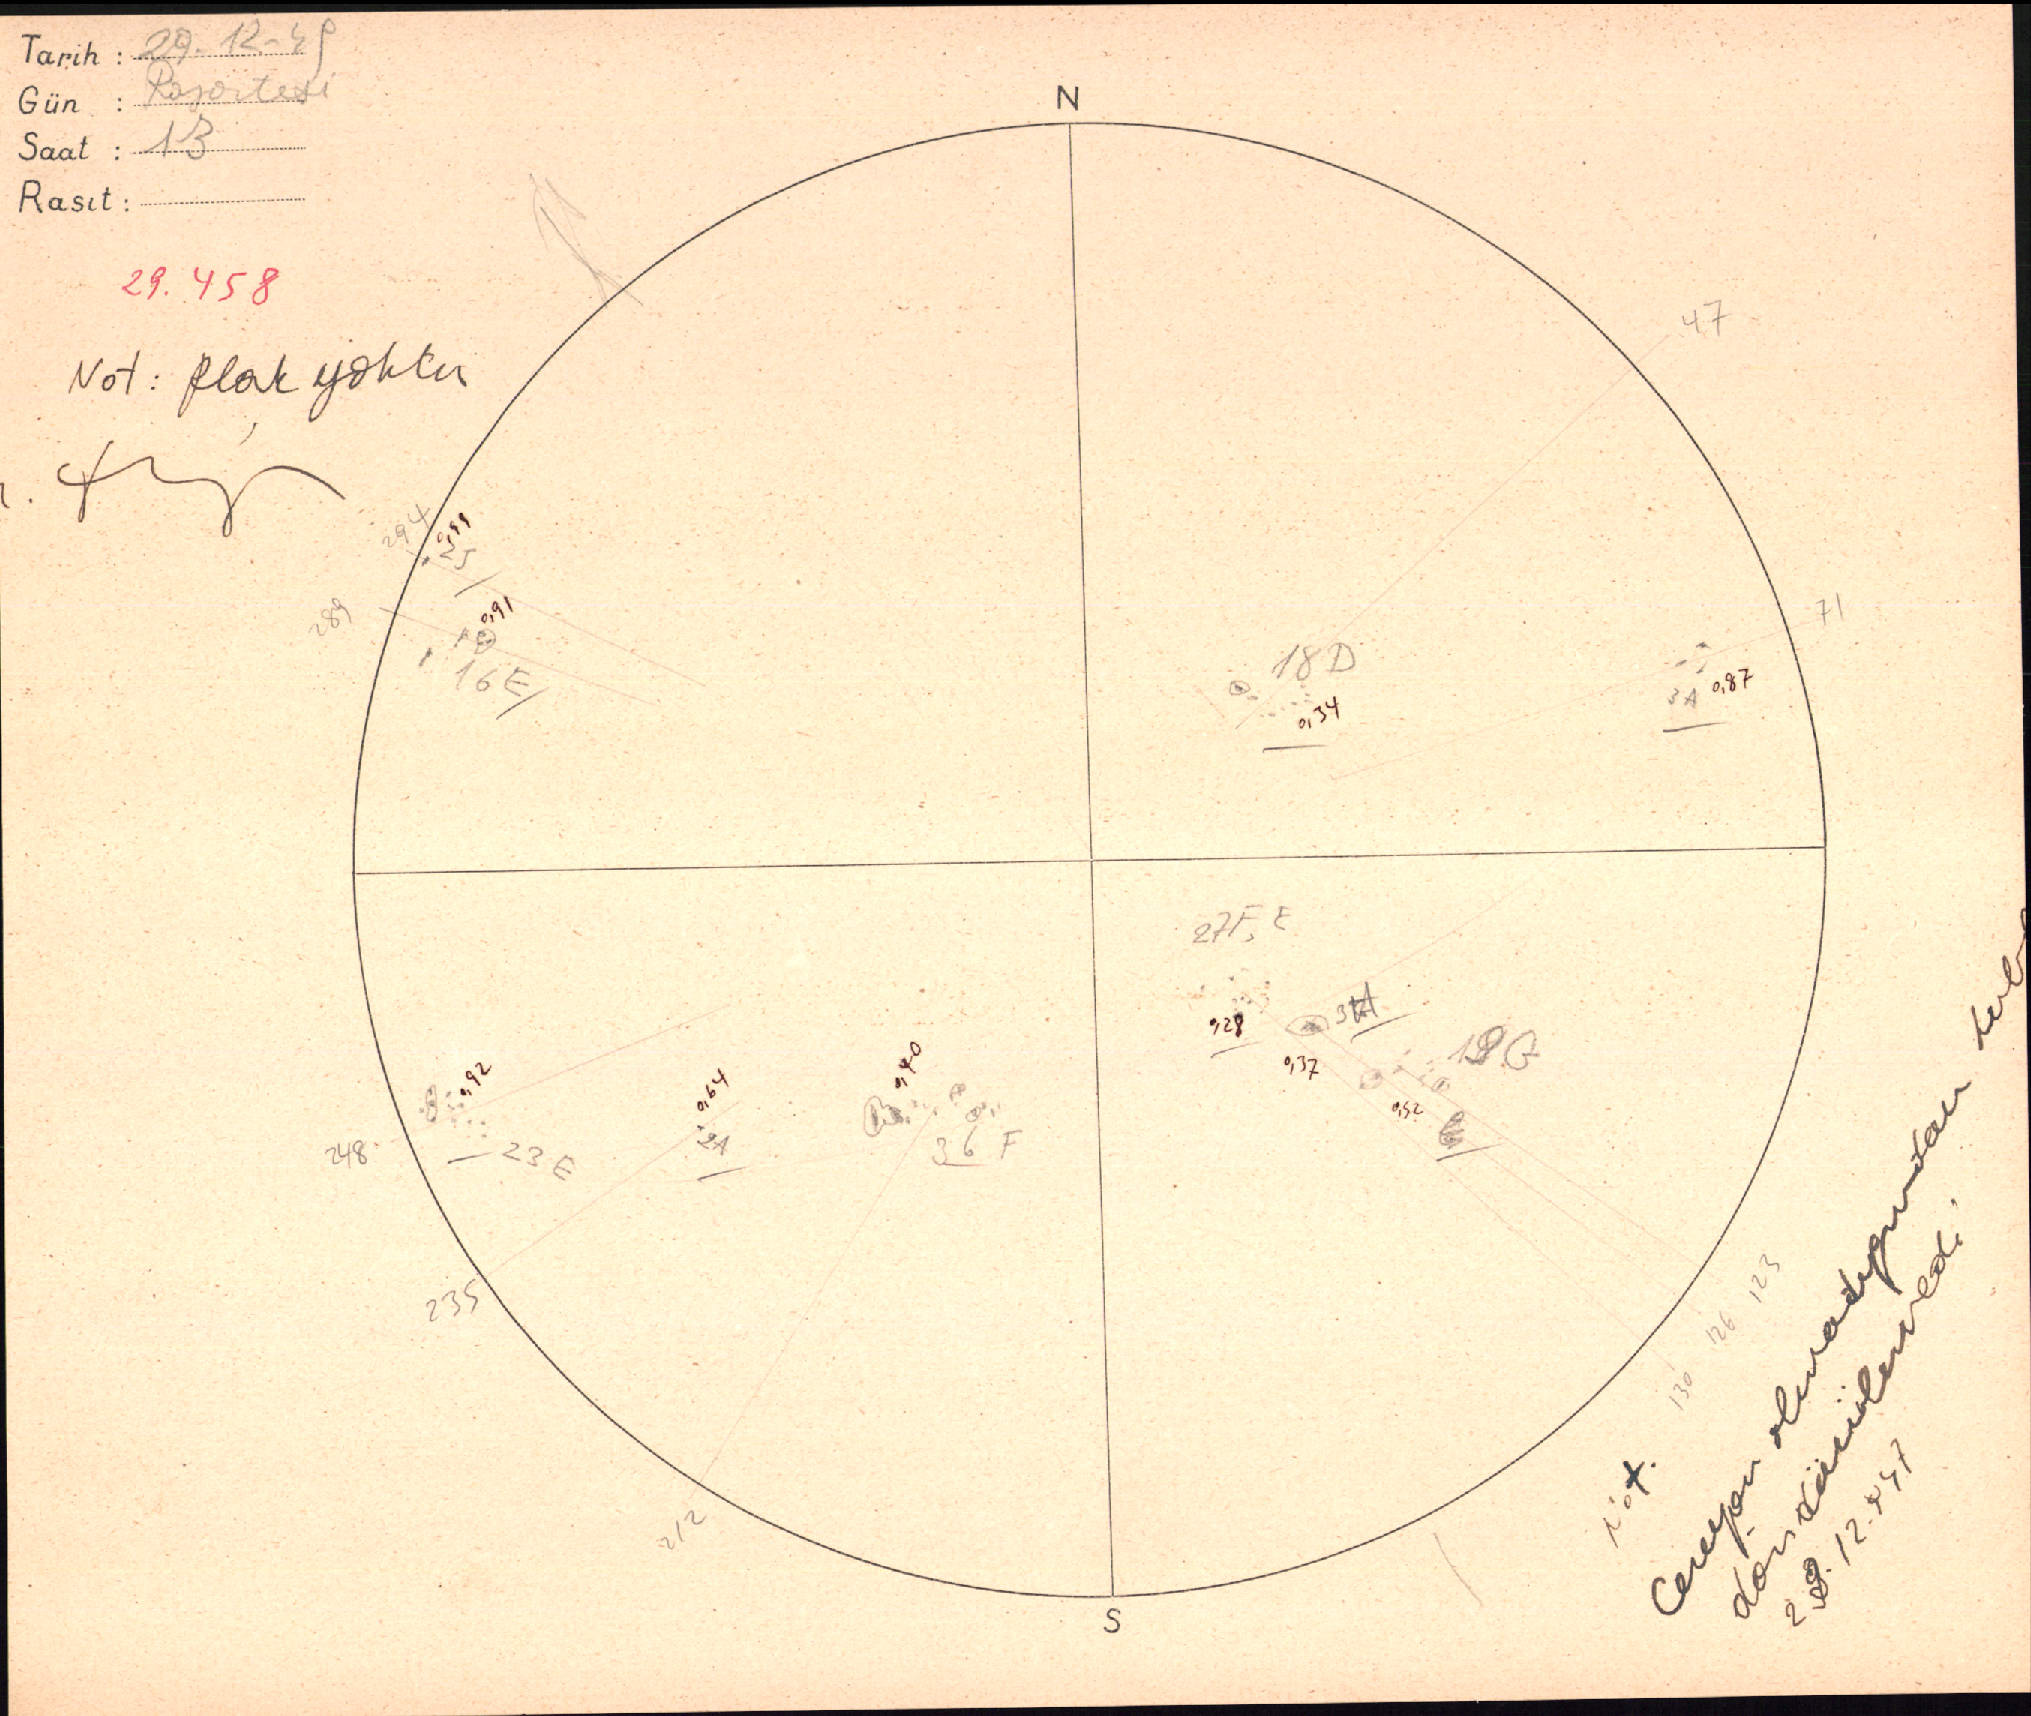 Tarih : 29.12-47
Gün : Pazartesi
Saat : 13
Rasıt :
29.458
Not: Plak yoktur
N
47
294
0,99
2J
289
0,91
16 E
18 D
0,34
71
3A
0,87
27F, E
0,28
3 H
0,37
19 G
0,52
0,92
248
23 E
0,64
2A
0,40
36 F
235
212
123
126
130
Not.
Cereyan olmadığından kub
döndürülemedi.
29.12.947
S